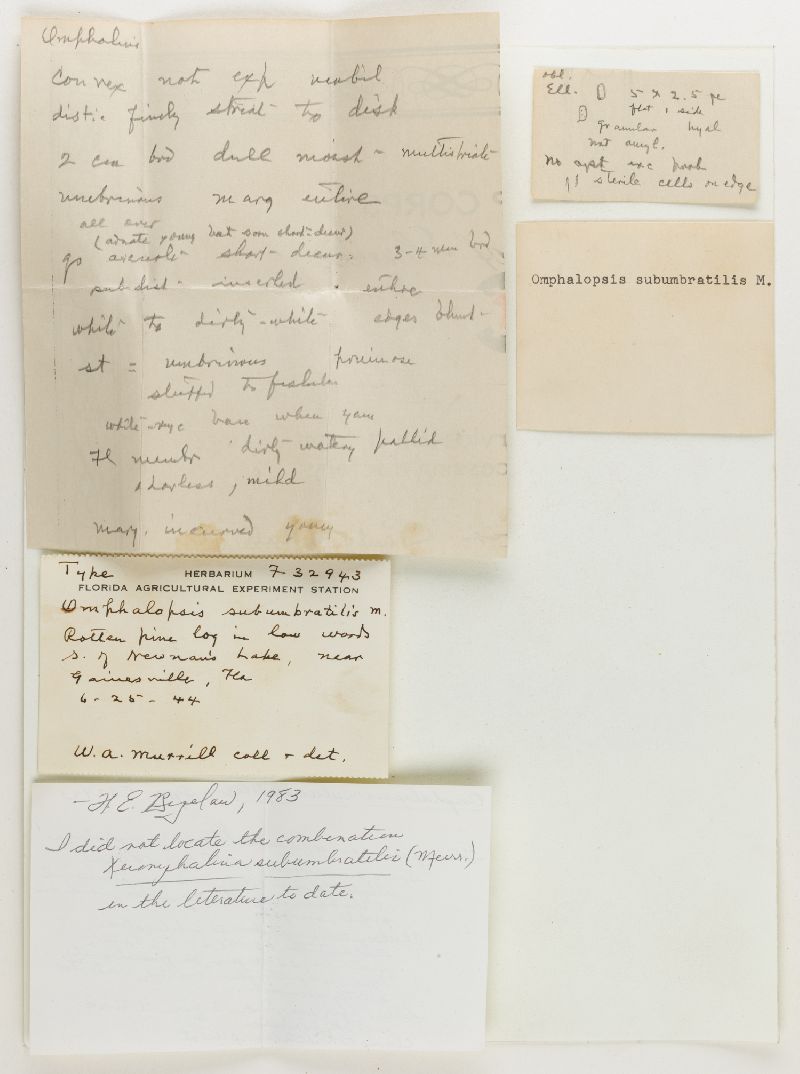 Omphalinis
Convex not exp umbil
distic finely striat to disk
2 cm brd dull moist - multistriate
umbrinous marg entire
all over
(adnate young but soon short-decur)
short-decur. 3-4 mm brd
subdist. inserted. entire
white to dirty-white edges blunt
st = umbrinous pruinose
stuffed to
white base when young
Fl membr dirty watery pallid
odorless, mild
marg. incurved young
obl.
Ell. 5 x 2.5 µ
flat 1 side
granular hyal
not amyl.
No cyst exc
sterile cells on edge
Omphalopsis subumbratilis M.
Type HERBARIUM F 32943
FLORIDA AGRICULTURAL EXPERIMENT STATION
Omphalopsis subumbratilis M.
Rotten pine log in low woods
S. of Newnan's Lake, near
Gainesville, Fla
6-25-44
W.A. Murrill coll & det.
— H E. Bigelow, 1983
I did not locate the combination
Xeromphalina subumbratilis (Murr.)
in the literature to date.